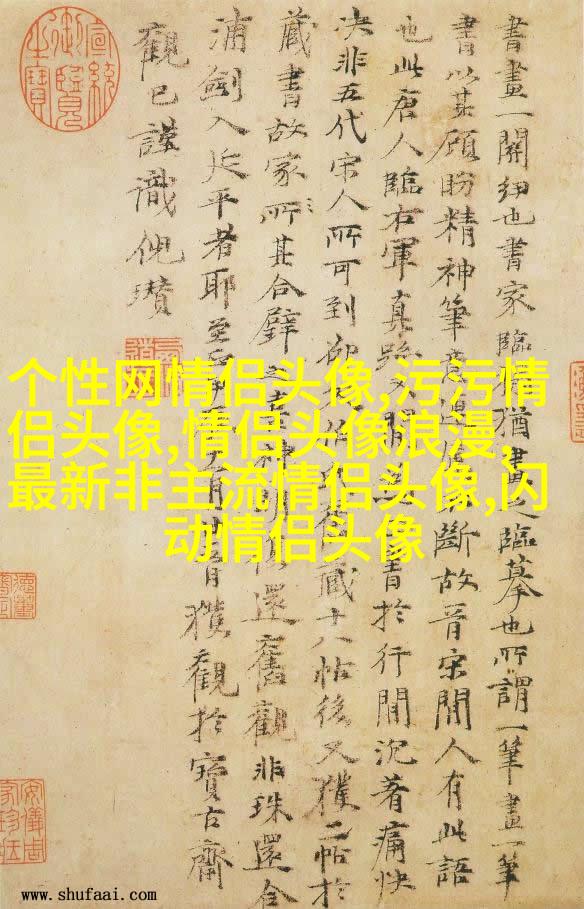 書畫一關紐也書家臨猶畫之臨摹也所謂一筆畫一筆
書以其顧盼精神筆意斷故晉宋間人有此語
也此唐人臨右軍真跡又書於行間沉著痛快
决非五代宋人所可到藏十八帖後又獲二帖於
藏書故家所其合璧神還舊觀非珠還合
浦劍入延平者耶至獲觀於寶古齋
觀已謹識倪瓚
宣統御覽之寶
个性网情侣头像,污污情
侣头像,情侣头像浪漫,
最新非主流情侣头像,闪
动情侣头像
www.shufaai.com